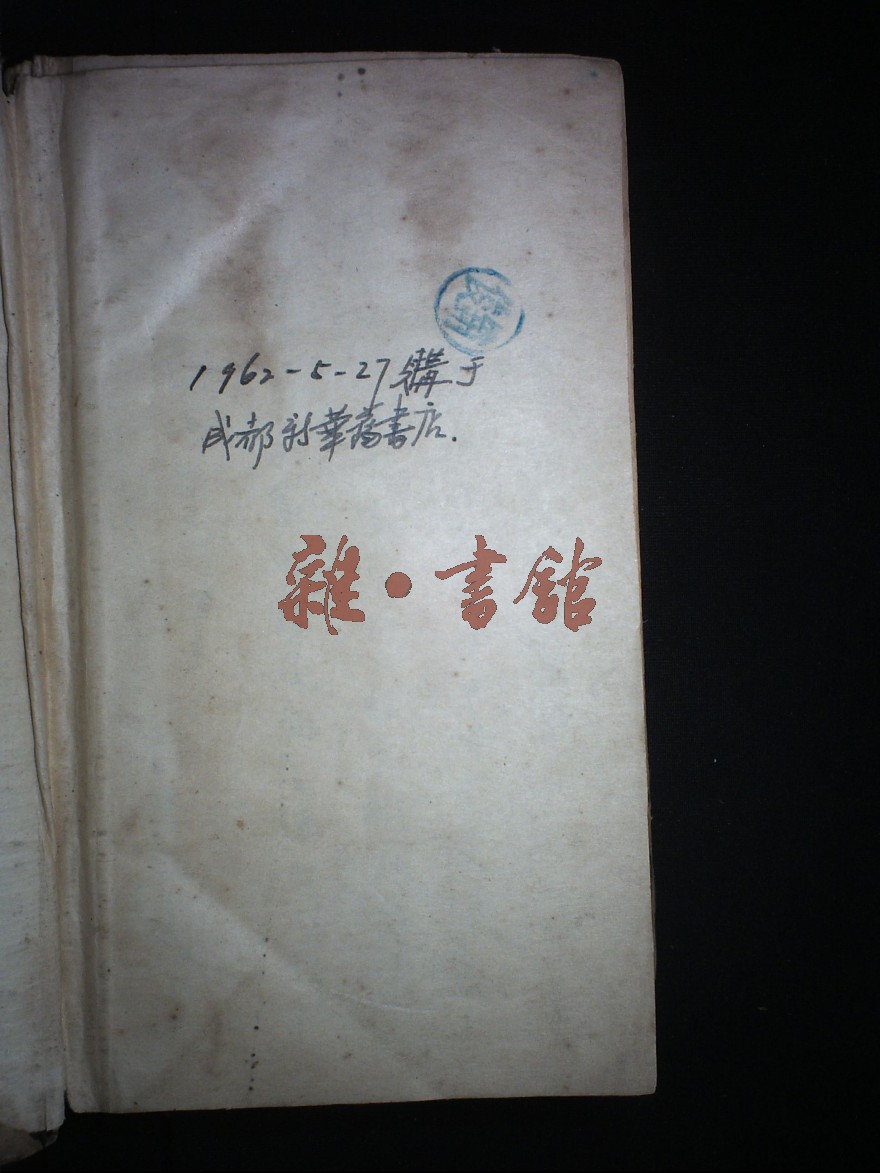 1962-5-27購于
成都新華舊書店.
雜•書館